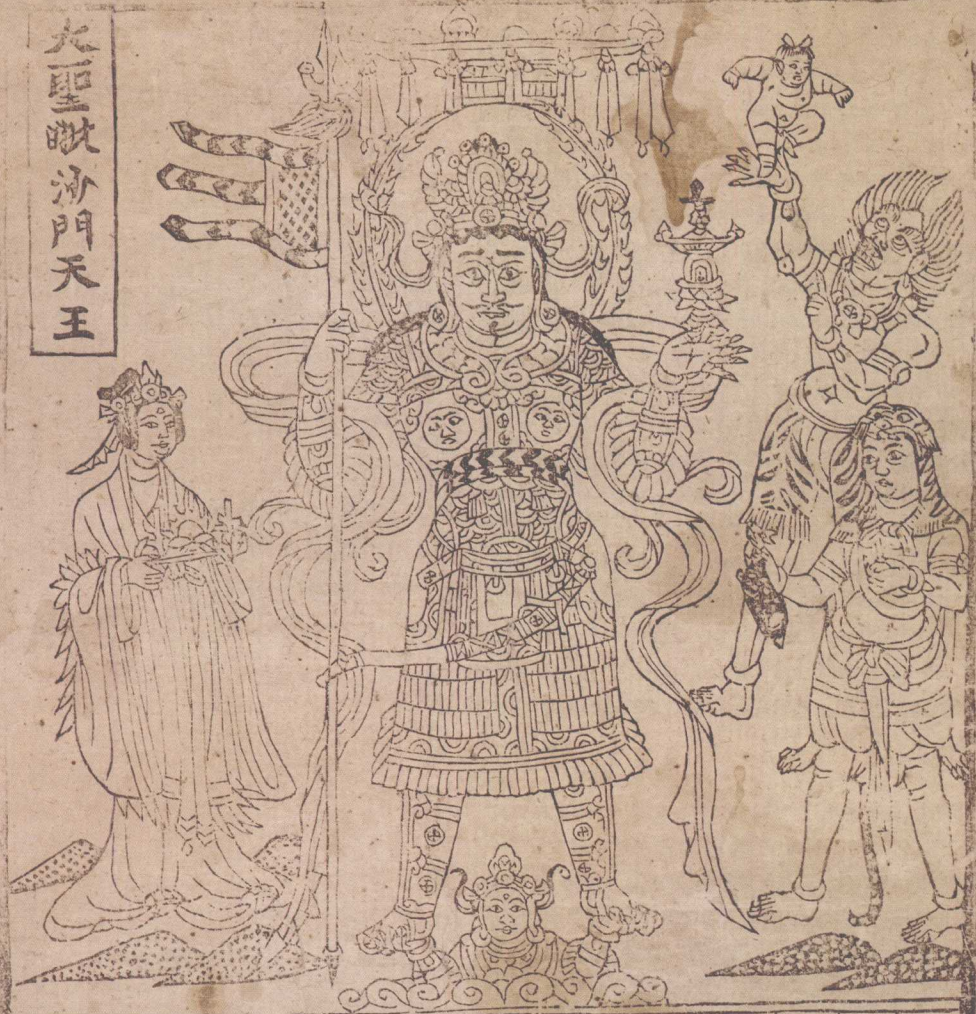 大聖毗沙門天王